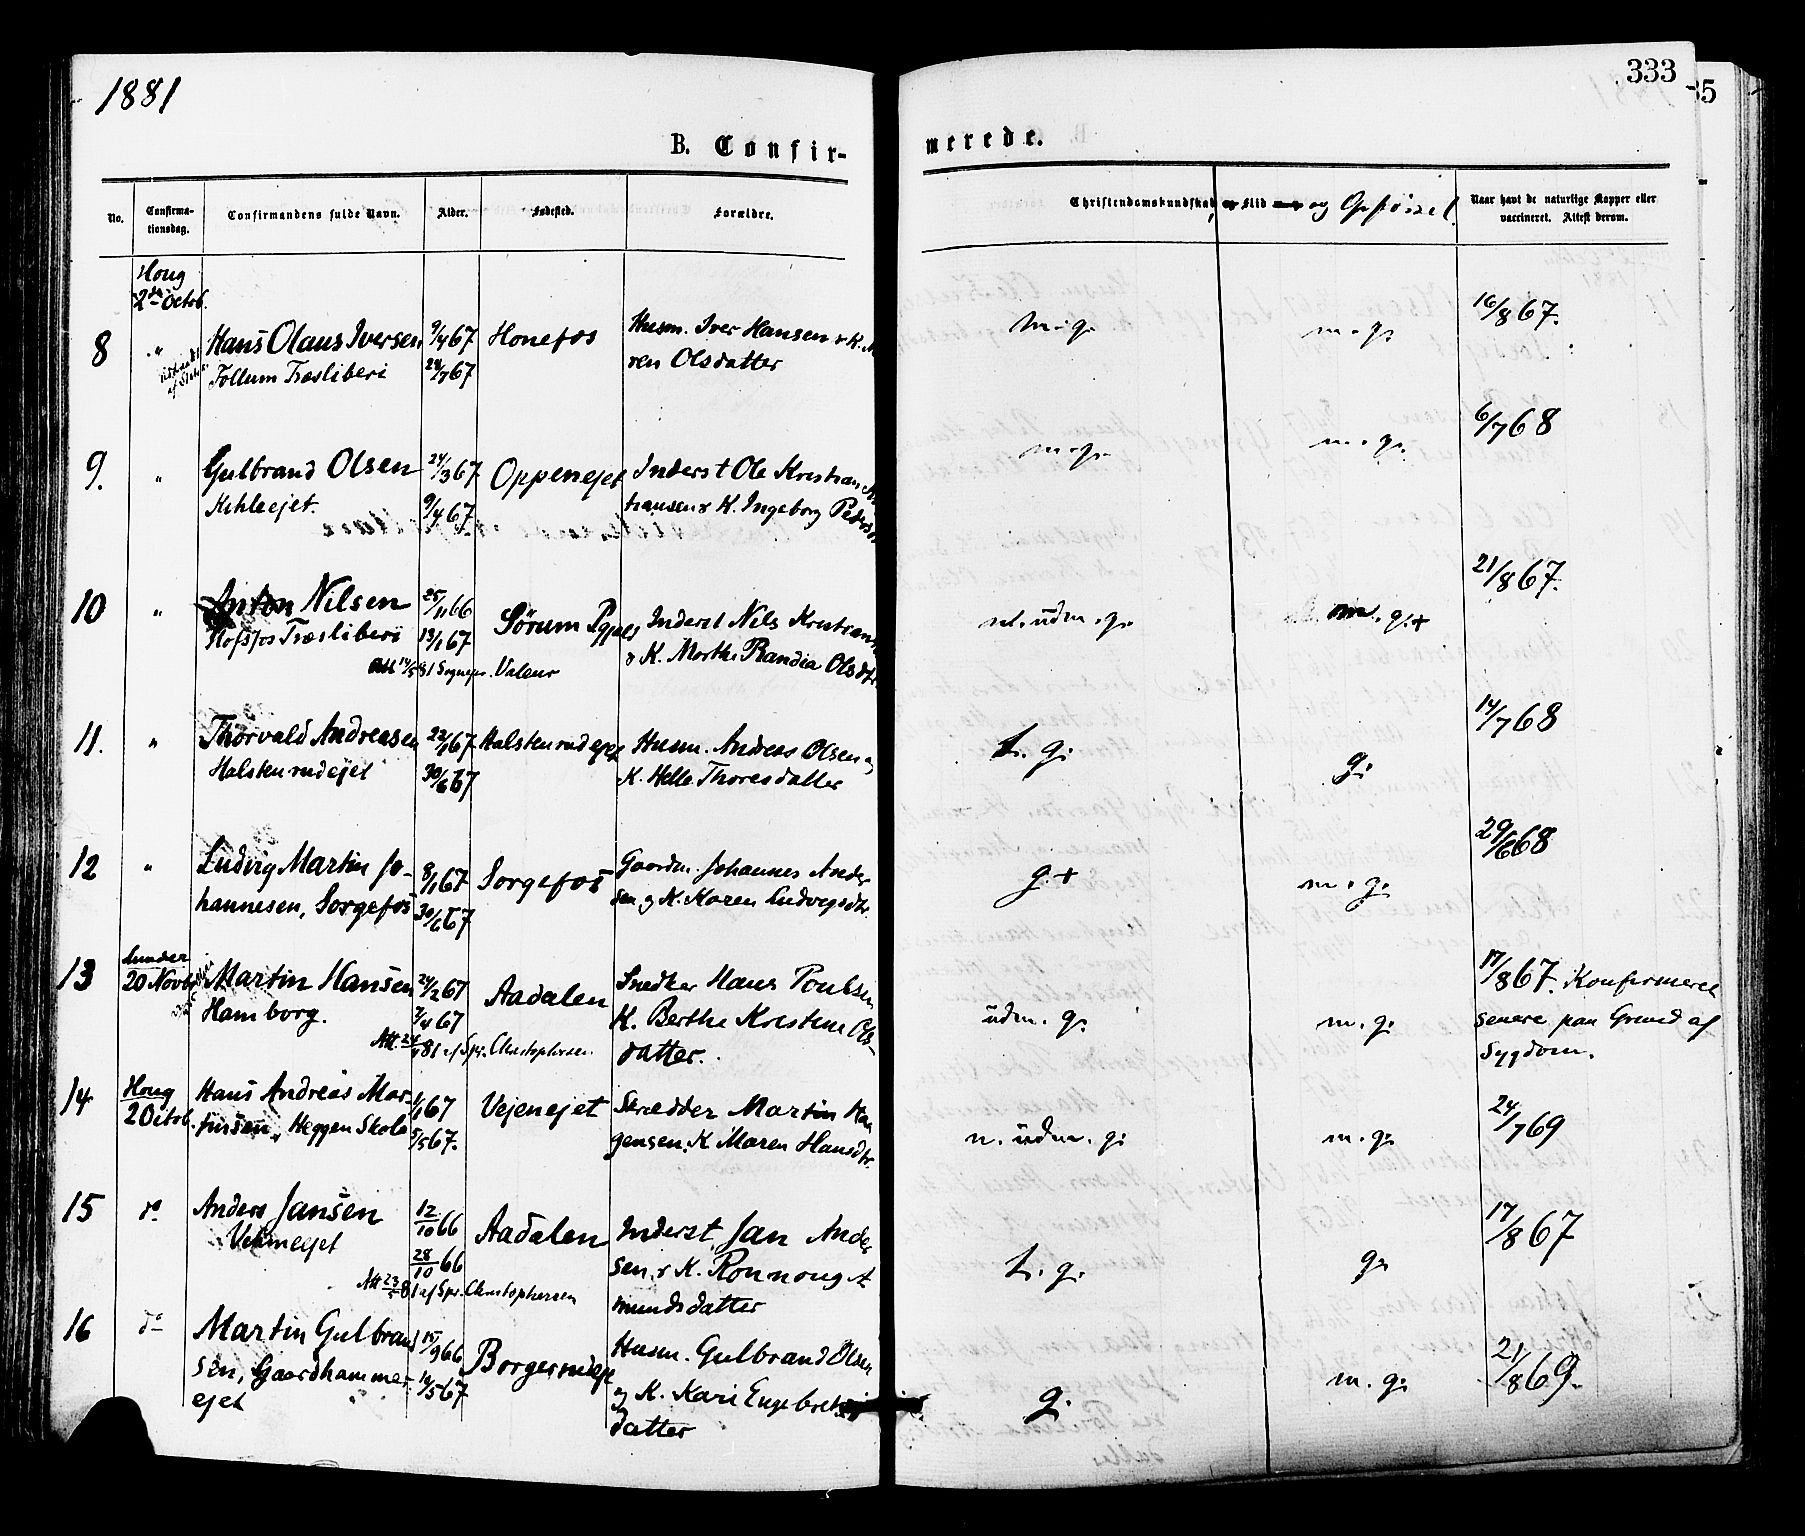 1881
333
35
B. Confir-
merede.
No.
Confirma-
tionsdag.
Confirmandens fulde Navn.
Alder.
Fødested.
Forældre.
Christendomskundskab, Flid og Opførsel
Naar havt de naturlige Kopper eller
vaccineret. Attest derom.
Houg
2den Octob.
8 " Hans Olaus Iversen 9/4 67 Honefos Husm. Iver Hansen & K. Ma m. g. m. g. 16/8 67.
Follum Træsliberi 24/7 67 ren Olsdatter
9. " Gulbrand Olsen 24/3 67 Oppenejet Inderst Ole Kristian m. g. m. g. 6/7 68
Kihleejet. 9/4 67. tiansen & K. Ingeborg
10 " Anton Nilsen 25/11 66 Sørum Inderst Nils m. g.+ 21/8 67.
Hofsfos Træsliberi 13/1 67 & K. Marthe Randia Olsdtr
Att 14/5 81 Sognepr. Valeur
11. " Thorvald Andreasen 22/1 67 Halstenrudejet Husm. Andreas Olsen og t. g. g. 14/7 68
Halstenrudejet 30/6 67 K. Helle Thoresdatter
12 " Ludvig Martin Jo- 8/1 67 Sorgefos Gaardm. Johannes Ander g.+ m. g. 29/6 68
hannesen, Sorgefos 30/6 67 sen og K. Maren Ludvigsdtr.
13 Lunder
20 Novbr Martin Hansen 24/2 67 Aadalen Snedker Hans Poulsen udm. g. m. g. 17/8 67. Konfirmeret
Hamborg. 7/4 67 K. Berthe Kristine Ols- senere paa Grund af
Att. 24/4 81 af Spr. Christophersen datter. Sygdom.
14 Houg
2 Octob. Hans Andreas Mar- 1/1 67 Vejenejet Skrædder Martin Hau n. udm. g. m. g. 24/7 69
tinsen, Heggen Skole 5/5 67. gensen, K Maren Hansdtr.
15 do Anders Jansen 12/10 66 Aadalen Inderst Jan Ander t. g. g. 17/8 67
28/10 66 sen & K. Ronnoug A
Att 23/5 81 af Spr. Christophersen mundsdatter
16 do Martin Gulbrand 15/9 66 Borgerudejet Husm. Gulbrand Olsen g. m. g. 21/8 69.
sen, Gaardhammer- 19/5 67 og K. Kari Engebrets
ejet datter